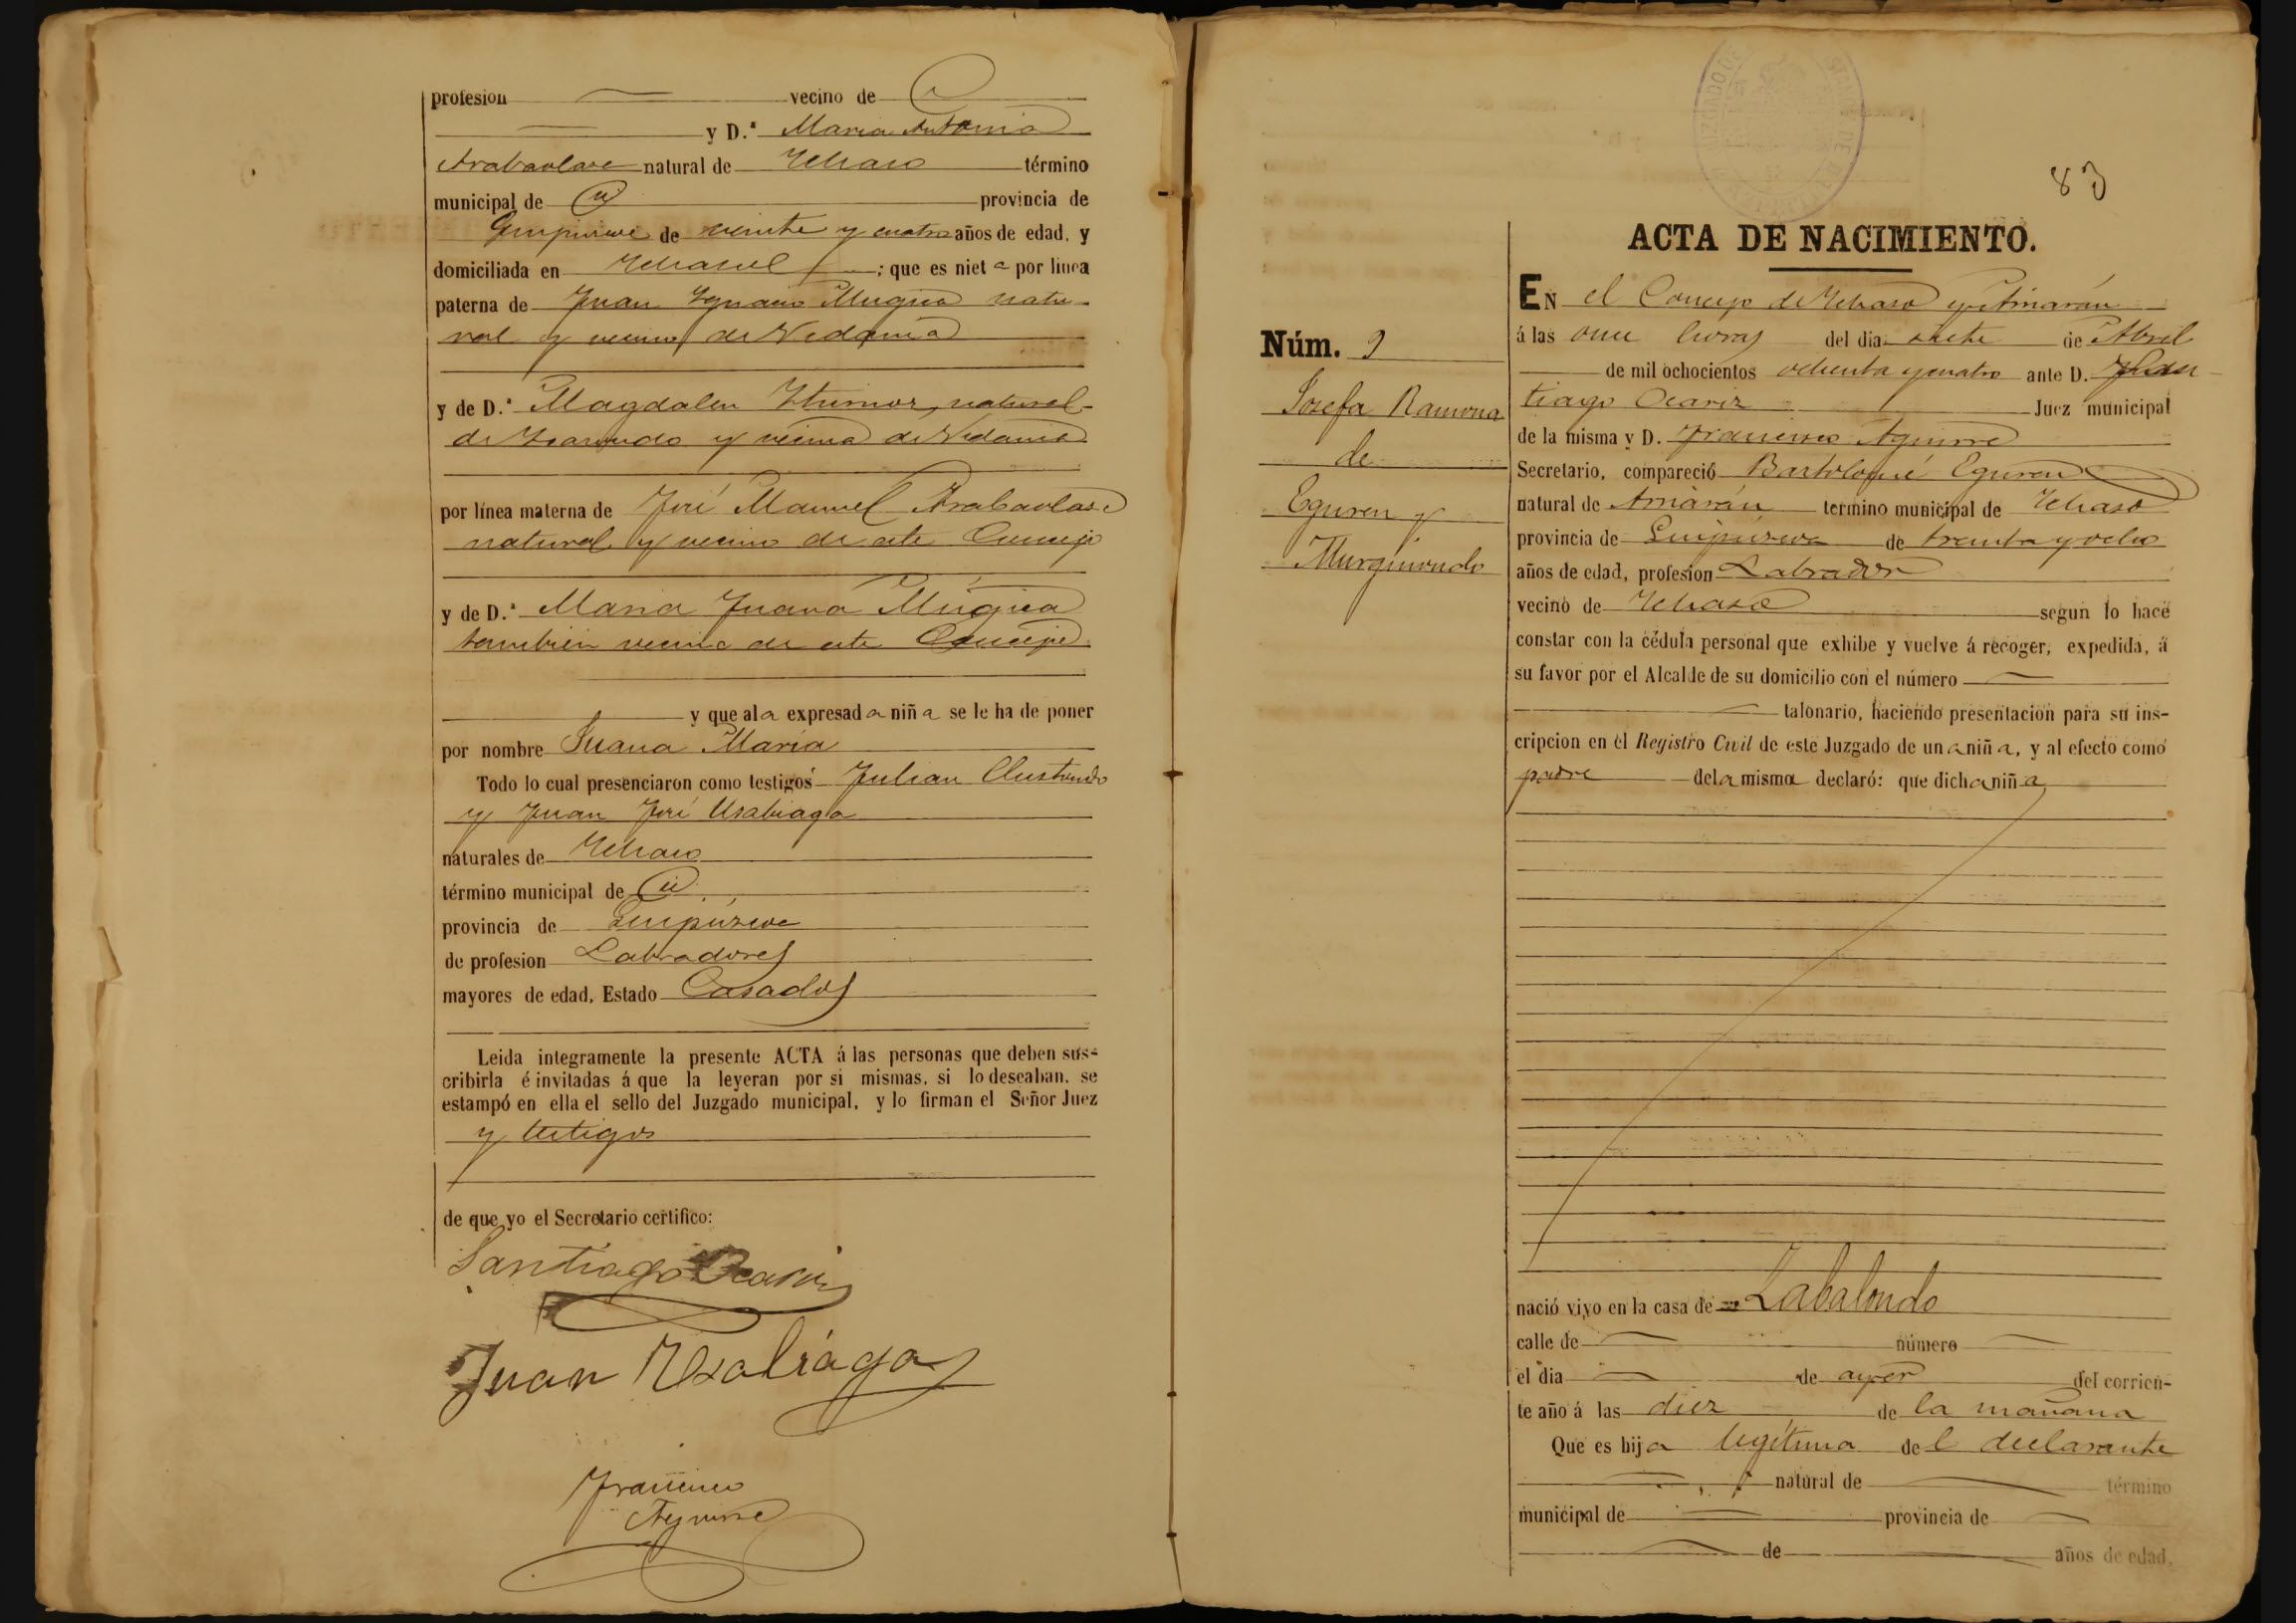 profesion vecino de
y D.ª Maria Antonia
Arabaolaza natural de Ichaso término
municipal de id provincia de
Guipuzcoa de veinte y cuatro años de edad, y
domiciliada en Ichaso ; que es niet a por línea
paterna de Juan Ygnacio Mugica natu-
ral y vecino de Vedania
y de D.ª Magdalen natural
de y vecina de Vedania
por línea materna de José Manuel Arabaolaza
natural y vecino de este Concejo
y de D.ª Maria Juana Múgica
tambien vecina de este Concejo
y que al a expresad a niñ a se le ha de poner
por nombre Juana María
Todo lo cual presenciaron como testigos Julian
y Juan José Usabiaga
naturales de Ichaso
término municipal de id
provincia de Guipúzcoa
de profesion Labradores
mayores de edad, Estado Casados
Leida integramente la presente ACTA á las personas que deben sus-
cribirla é invitadas á que la leyeran por si mismas, si lo deseaban, se
estampó en ella el sello del Juzgado municipal, y lo firman el Señor Juez
y testigos
de que yo el Secretario certifico:
Santiago Ocariz
Juan Usabiaga
Francisco
Aguirre
83
ACTA DE NACIMIENTO.
EN el Concejo de Ichaso y Arriarán
á las once horas del dia siete de Abril
de mil ochocientos ochenta y cuatro ante D. San
tiago Ocariz Juez municipal
de la misma y D. Francisco Aguirre
Secretario, compareció Bartolomé Eguren
natural de Arriarán termino municipal de Ichaso
provincia de Guipúzcoa de treinta y ocho
años de edad, profesion Labrador
vecino de Ichaso segun lo hace
constar con la cédula personal que exhibe y vuelve á recoger, expedida, á
su favor por el Alcalde de su domicilio con el número
talonario, haciendo presentacion para su ins-
cripcion en el Registro Civil de este Juzgado de un a niñ a, y al efecto como
padre de la misma declaró: que dich a niñ a
Núm. 9
Josefa Ramona
de
Eguren y
Murguiondo
nació vivo en la casa de Zabalondo
calle de número
el dia de ayer del corrien-
te año á las diez de la mañana
Que es hij a legítima de l declarante
natural de término
municipal de provincia de
de años de edad,